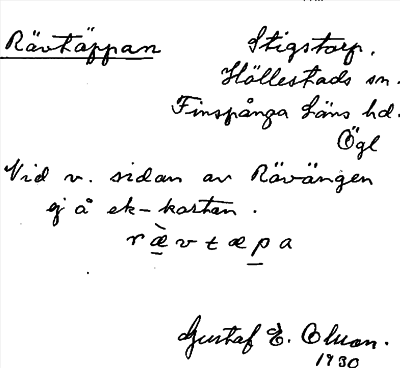 Rävtäppan
Stigstorp.
Hällestads sn.
Finspånga läns hd.
Ögl
Vid v. sidan av Rävängen
ej å ek-kartan.
r æ̀ v t æ p a
Gustaf E. Olsson.
1930